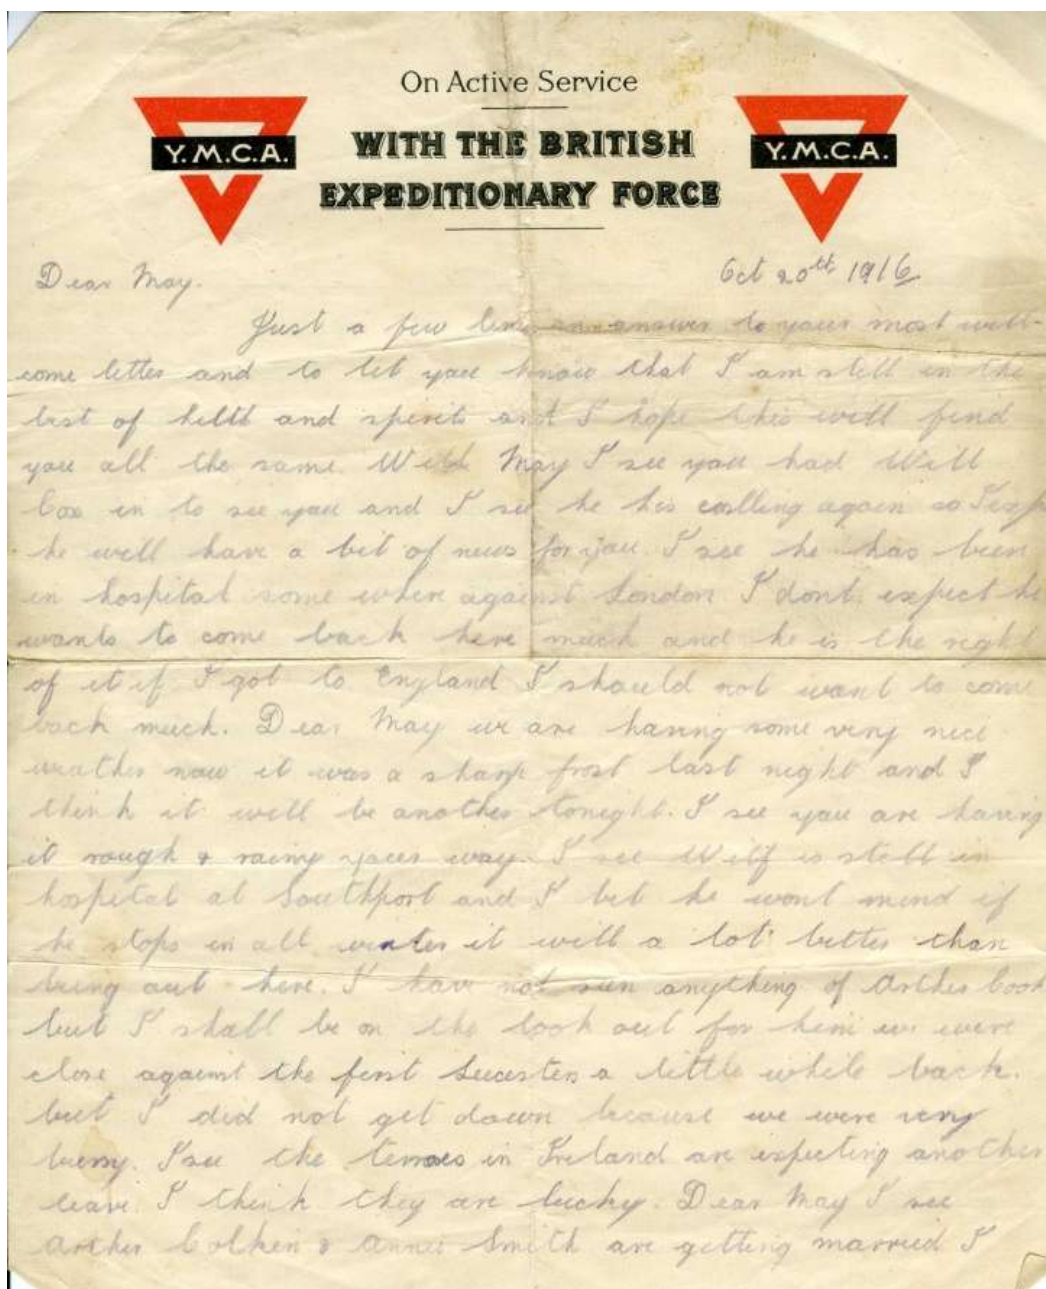 On Active Service
Y.M.C.A. WITH THE BRITISH Y.M.C.A.
EXPEDITIONARY FORCE
Dear May. Oct 20th 1916
Just a few lines in answer to yours most well-
come letter and to let you know that I am still in the
best of helth and spirits and I hope this will find
you all the same. Well May I see you had Will
Cox in to see you and I see he his calling again so I exp
he will have a bit of news for you. I see he has been
in hospital some where against London I dont expect he
wants to come back here much and he is the right
of it if I got to England I should not want to come
back much. Dear May we are having some very nice
weather now it was a sharp frost last night and I
think it will be another tonight. I see you are having
it rough & rainy your way. I see Wilf is still in
hospital at Southport and I bet he wont mind if
he stops in all winter it will a lot better than
being out here. I have not seen anything of Arther Cook
but I shall be on the look out for him we were
close against the first a little while back.
but I did not get down because we were very
busy. I see the in Ireland are expecting another
leave I think they are lucky. Dear May I see
Arther & Annie Smith are getting married I